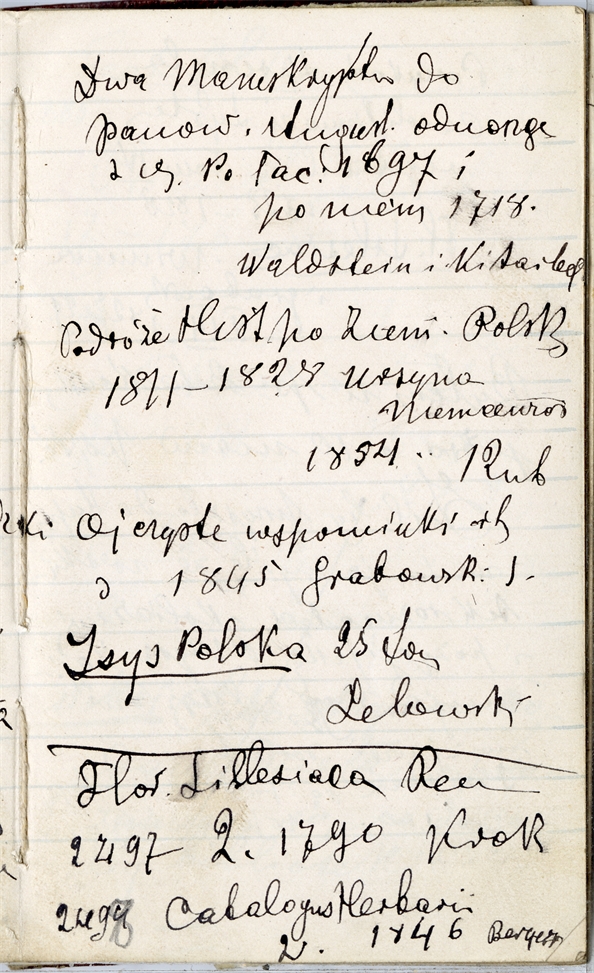 Dwa Manuskrypta do
panow. August. odnosze
po łac. 1697 i
po niem 1718.
Waldstein i Kitaibel
Podróże Hist po Ziem. Polsk
1811-1828 Ursyna
Niemcewicz
1854 .. 1 Rub
Ojczyste wspominki
1845 Grabowski
Isys Polska 25 tom
Lebowski
Flor. Sillesiaca
2497 2. 1790 Krok
249 Catalogus Herbarii
2. 1846